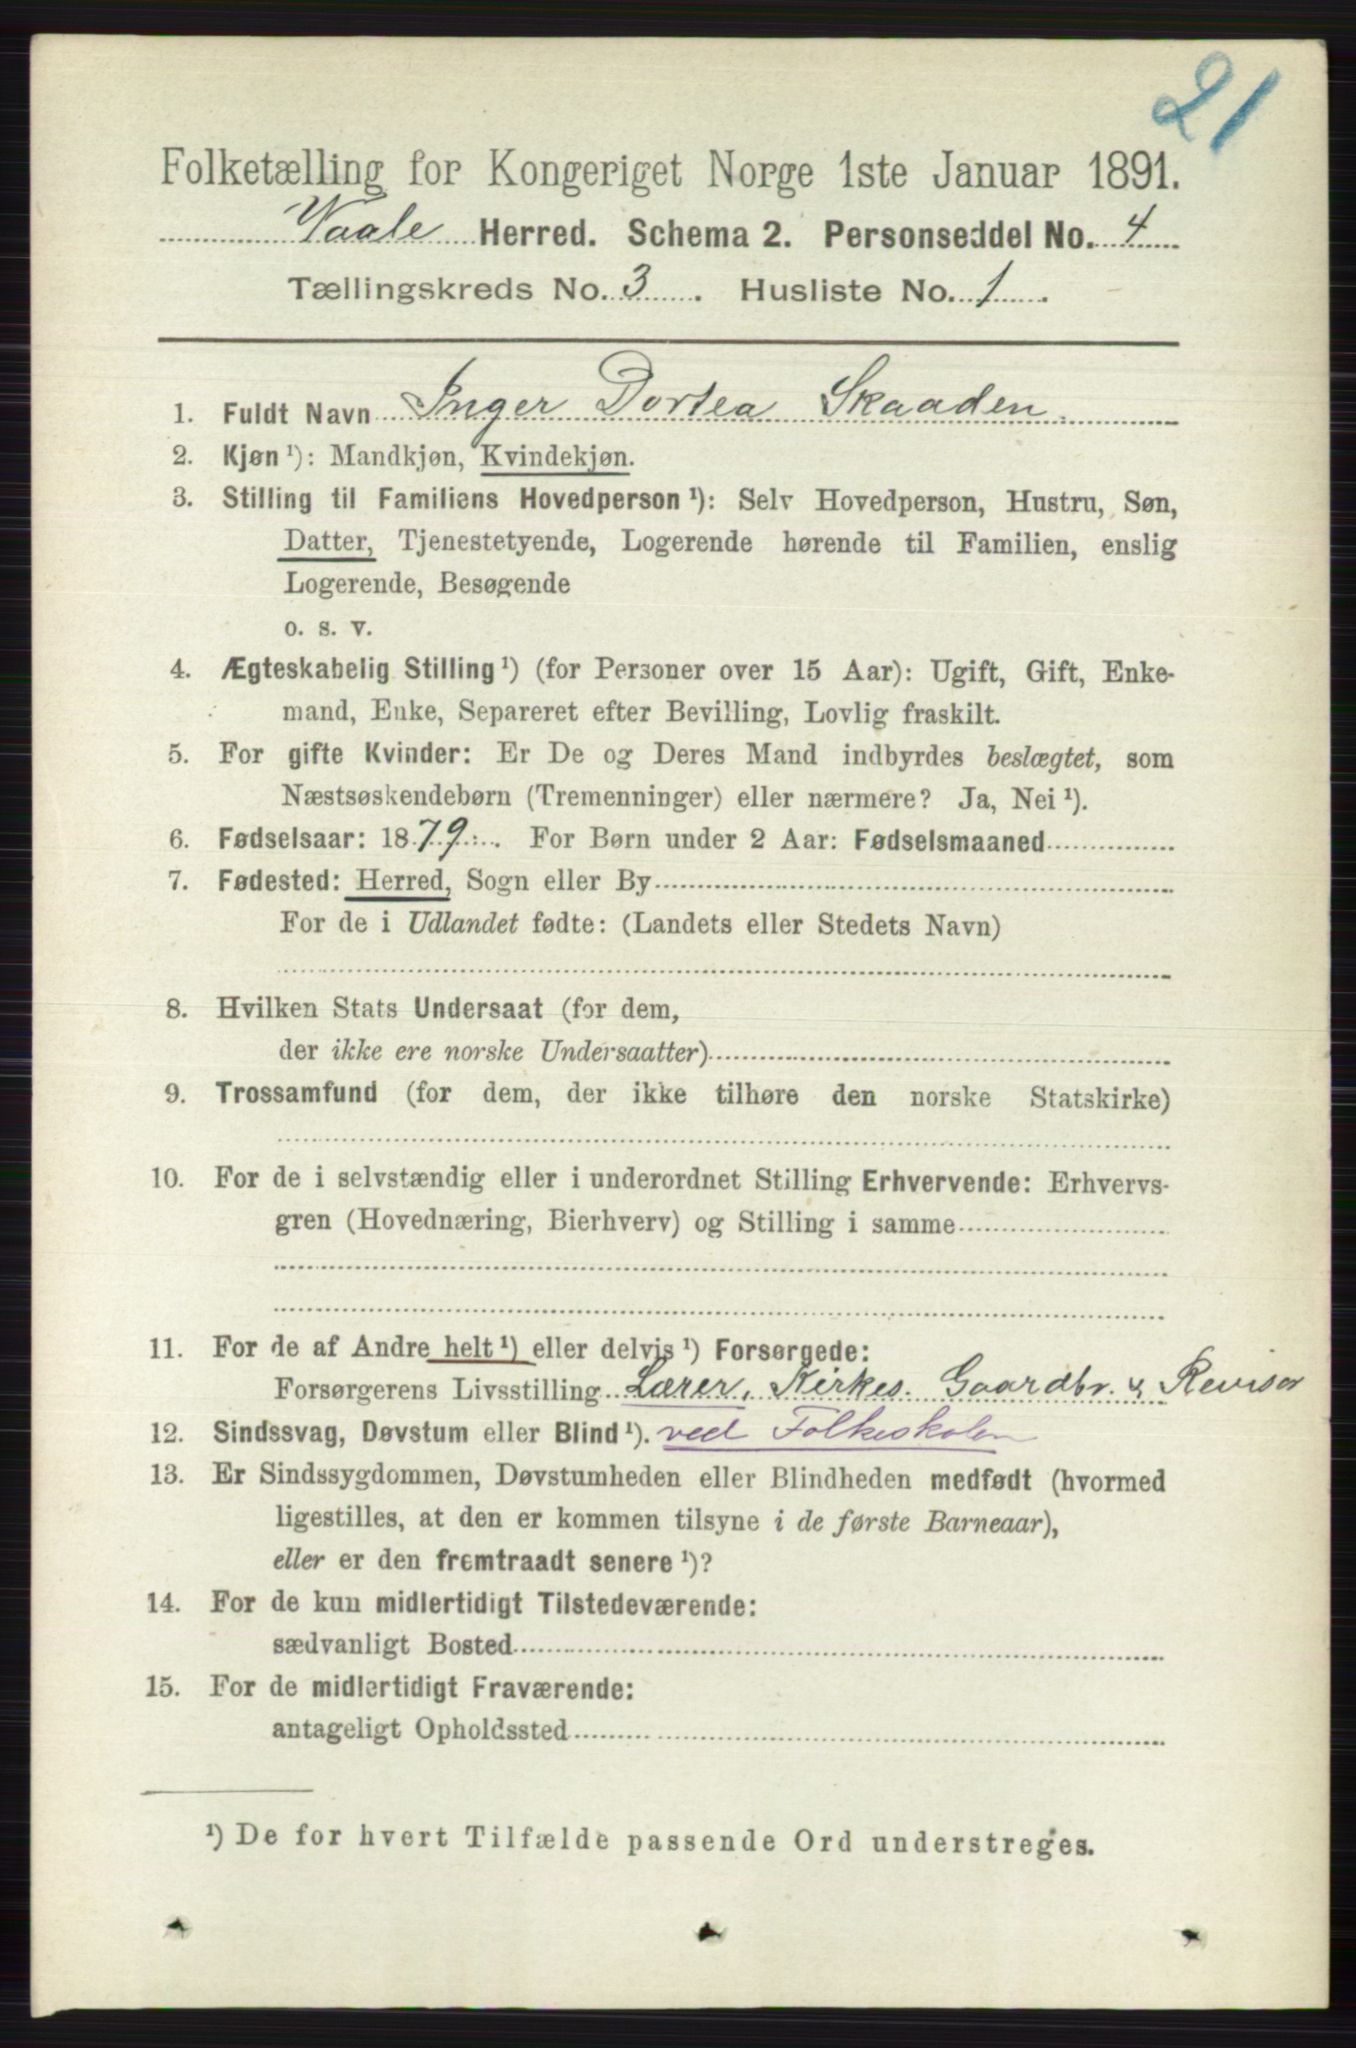 21
Folketælling for Kongeriget Norge 1ste Januar 1891.
Vaale Herred. Schema 2. Personseddel No. 4
Tællingskreds No. 3. Husliste No. 1.
1. Fuldt Navn Inger Dortea Skaaden
2. Kjøn ¹): Mandkjøn, Kvindekjøn.
3. Stilling til Familiens Hovedperson ¹): Selv Hovedperson, Hustru, Søn,
Datter, Tjenestetyende, Logerende hørende til Familien, enslig
Logerende, Besøgende
o. s. v.
4. Ægteskabelig Stilling ¹) (for Personer over 15 Aar): Ugift, Gift, Enke-
mand, Enke, Separeret efter Bevilling, Lovlig fraskilt.
5. For gifte Kvinder: Er De og Deres Mand indbyrdes beslægtet, som
Næstsøskendebørn (Tremenninger) eller nærmere? Ja, Nei ¹).
6. Fødselsaar: 1879. For Børn under 2 Aar: Fødselsmaaned
7. Fødested: Herred, Sogn eller By
For de i Udlandet fødte: (Landets eller Stedets Navn)
8. Hvilken Stats Undersaat (for dem,
der ikke ere norske Undersaatter)
9. Trossamfund (for dem, der ikke tilhøre den norske Statskirke)
10. For de i selvstændig eller i underordnet Stilling Erhvervende: Erhvervs-
gren (Hovednæring, Bierhverv) og Stilling i samme
11. For de af Andre helt ¹) eller delvis ¹) Forsørgede:
Forsørgerens Livsstilling Lærer, Kirkes. Gaardbr. & Revisor
12. Sindssvag, Døvstum eller Blind ¹). ved Folkeskolen
13. Er Sindssygdommen, Døvstumheden eller Blindheden medfødt (hvormed
ligestilles, at den er kommen tilsyne i de første Barneaar),
eller er den fremtraadt senere ¹)?
14. For de kun midlertidigt Tilstedeværende:
sædvanligt Bosted
15. For de midlertidigt Fraværende:
antageligt Opholdssted
¹) De for hvert Tilfælde passende Ord understreges.